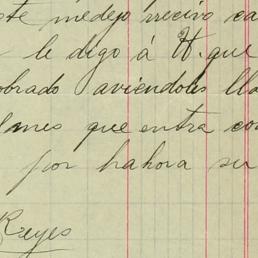 este me dejo recivo ca
le digo á H. que
obrado aviendoles lla
lunes que entra con
por hahora su
Reyes